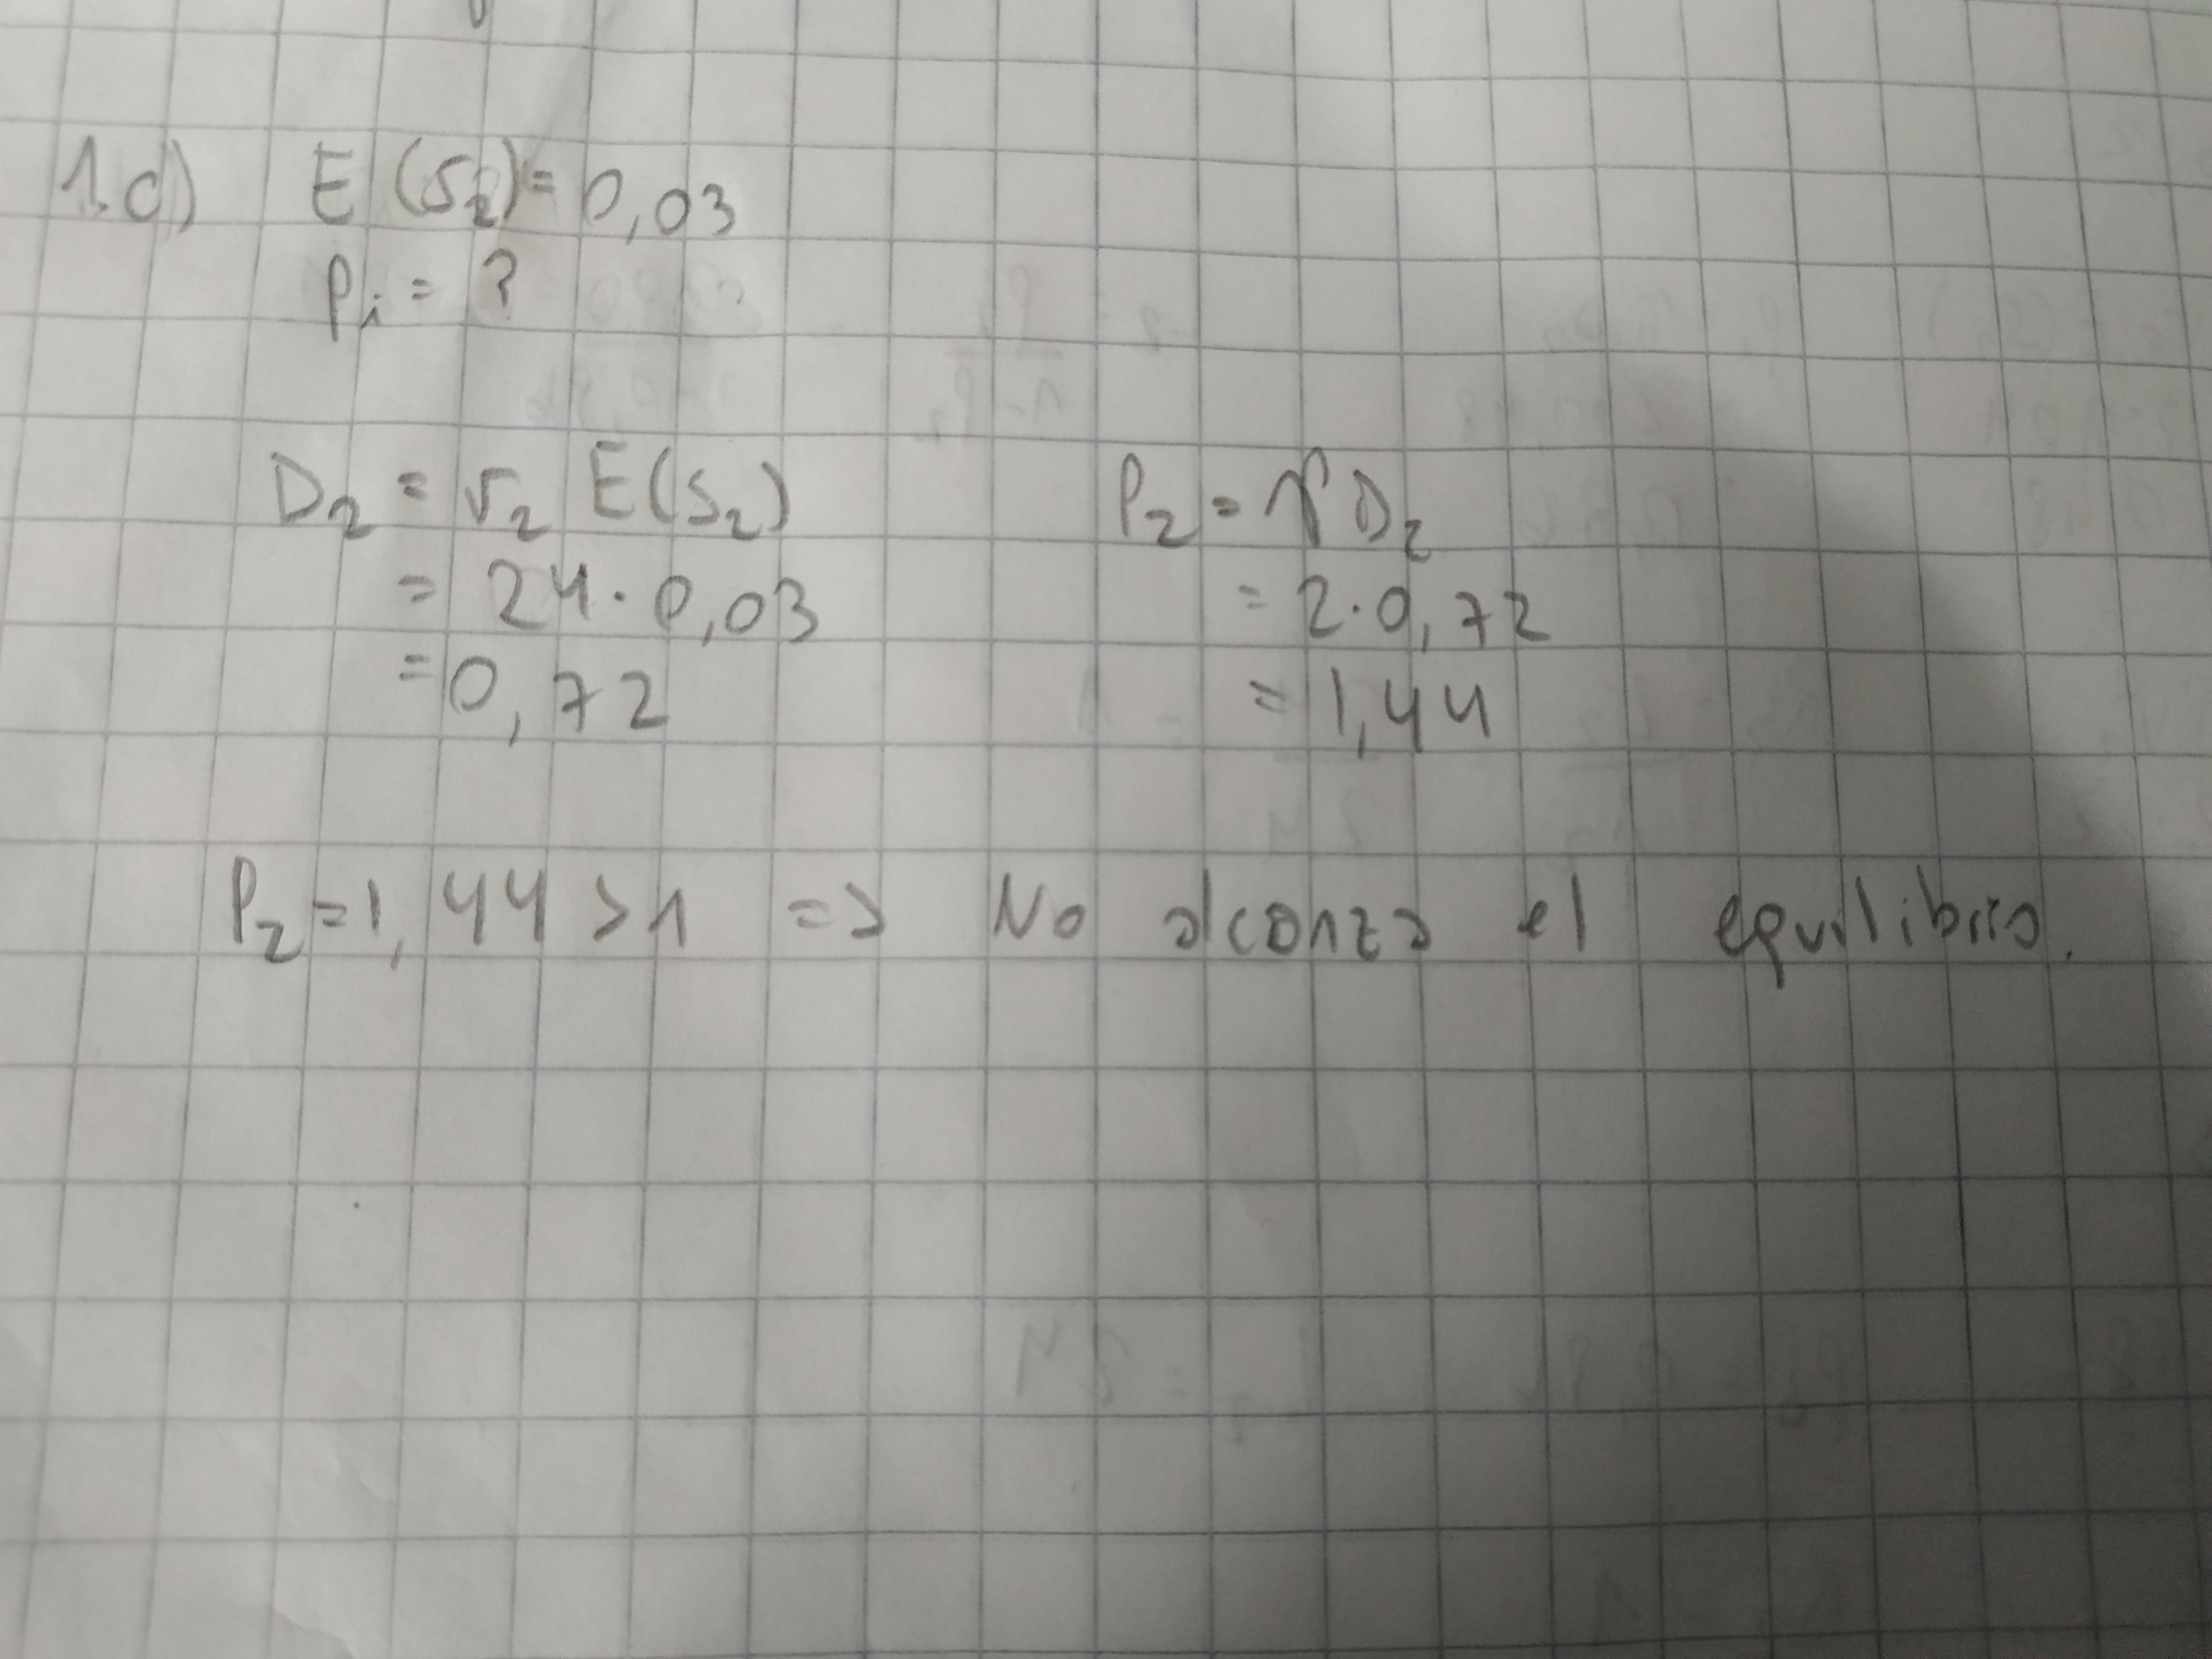 1.c) E (S₂) = 0,03
ρᵢ = ?
D₂ = V₂ E(S₂)
= 24 · 0,03
= 0,72
ρ₂ = γ D₂
= 2 · 0,72
= 1,44
ρ₂ = 1,44 > 1 => No alcanza el equilibrio.